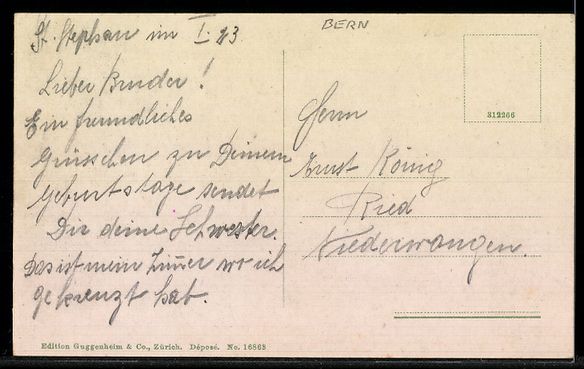 BERN
St. Stephan im I. 23
Lieber Bruder!
Ein freundliches
Grüsschen zu Deinem
Geburtstage sendet
Dir deine Schwester.
Das ist mein Zimmer wo ich
gekreuzt hab.
312266
Herrn
Ernst König
Ried
Niederwangen.
Edition Guggenheim & Co., Zürich. Déposé. No. 16863